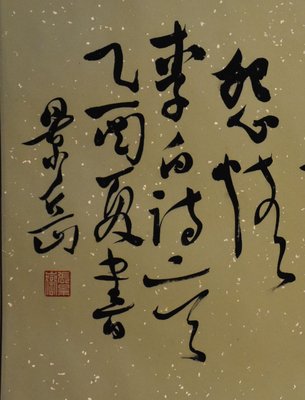 怨情
李白詩二首
乙酉夏書
景岳